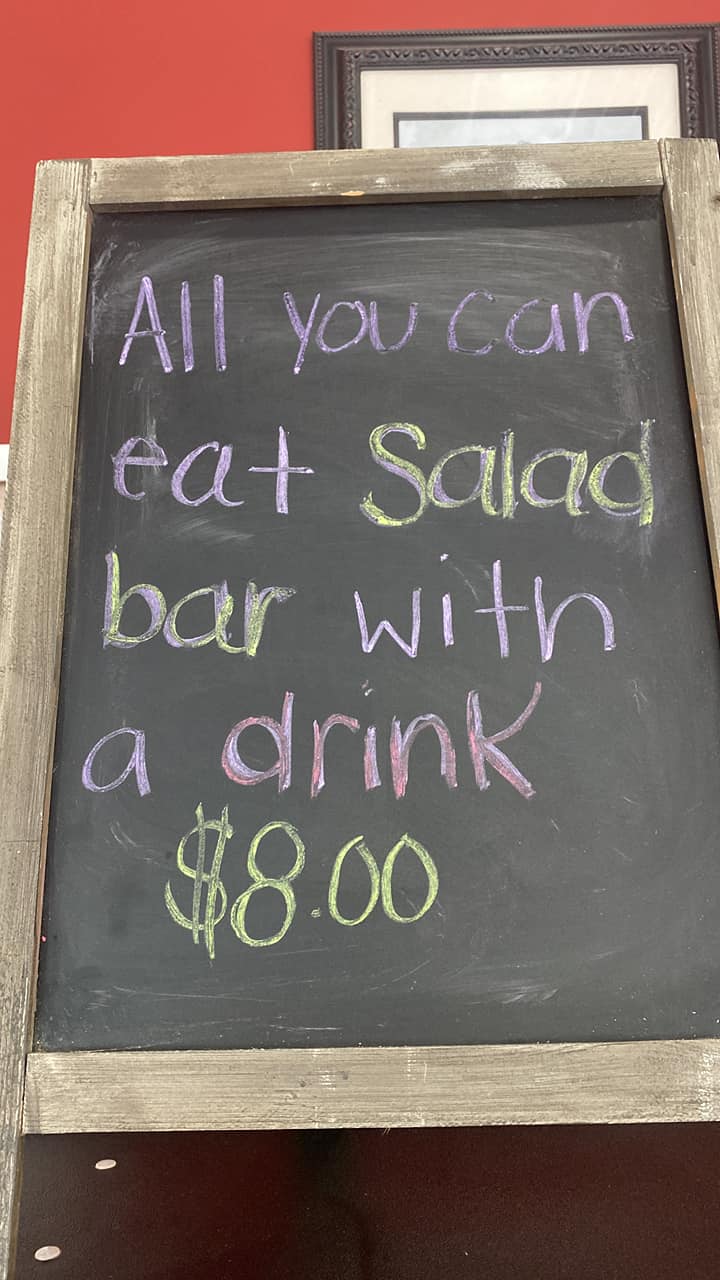 All you can
eat Salad
bar with
a drink
$8.00